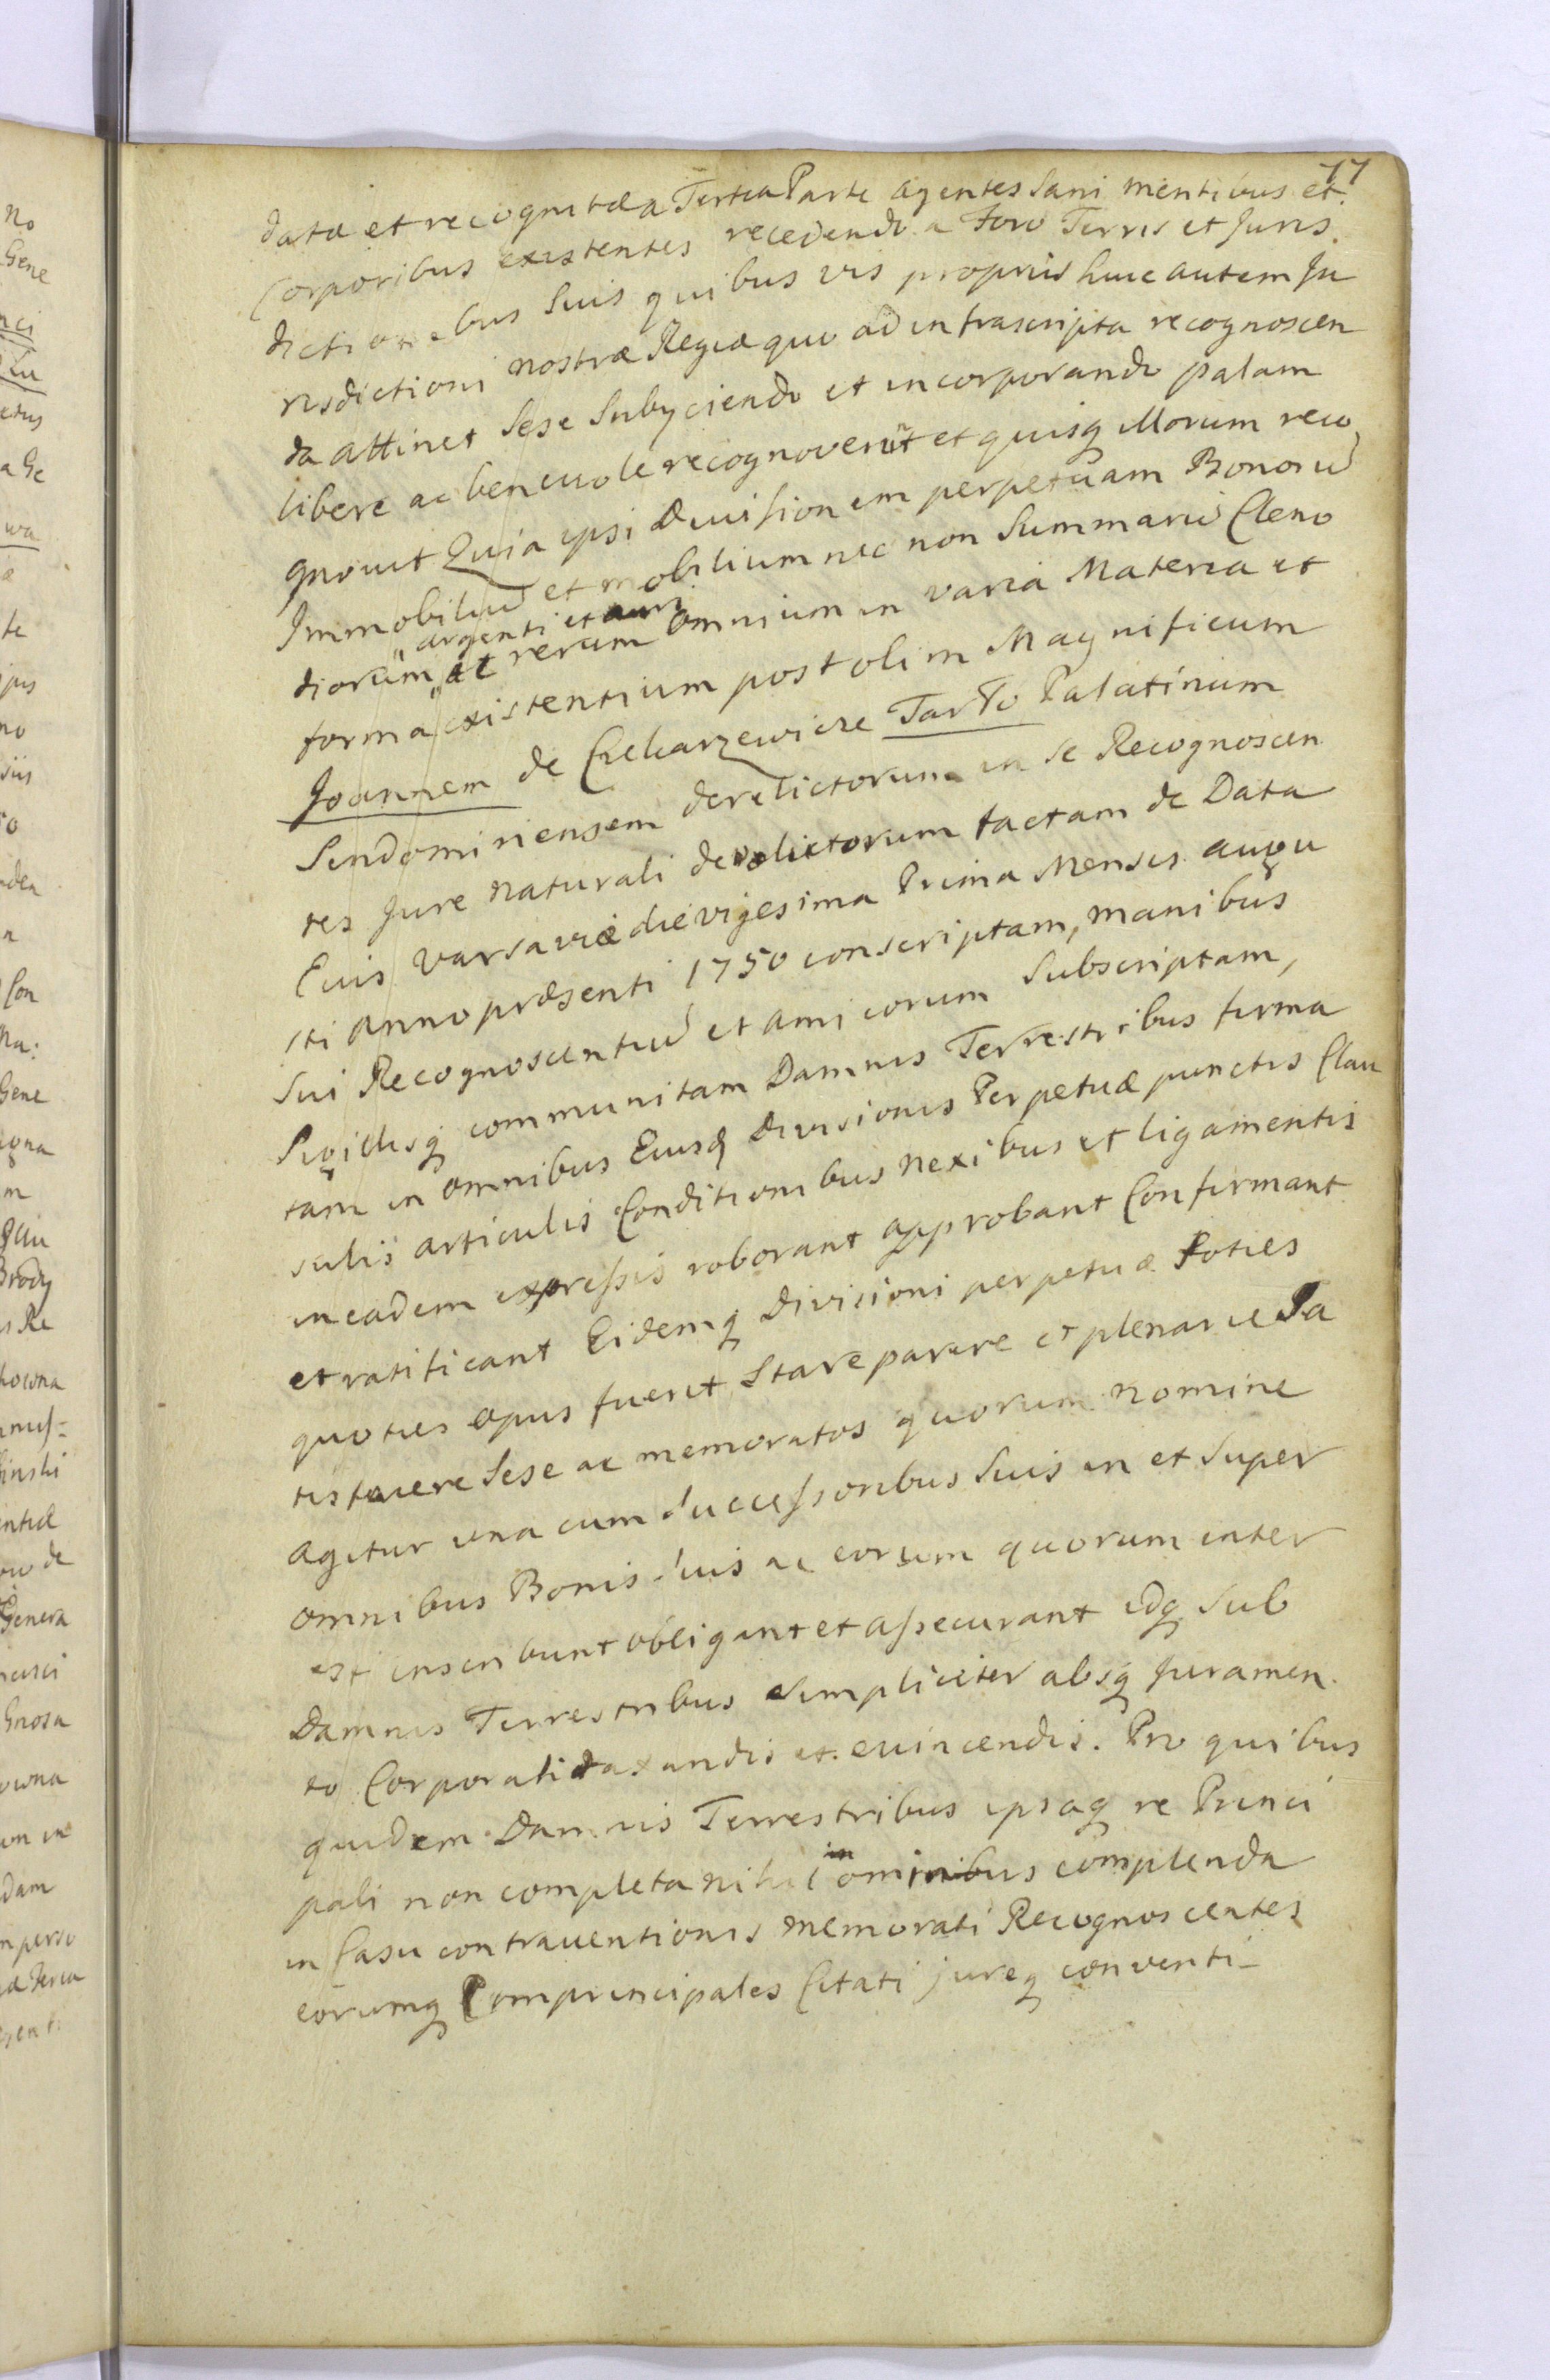 77
datæ et recognitæ a Tertia Parte agentes Sani mentibus et
Corporibus existentes recedendo a Foro Terris et Juris
dictionibus Suis quibus vis propriis huic autem Ju
risdictioni nostræ Regiæ quo ad infrascripta recognoscen
da attinet Sese Subyciendo et incorporando palam
libere ac benevole recognoverũt et quisq illorum reco
gnovit Quia ipsi Divisionem perpetuam Bonorũ
Immobiliũ et mobilium nec non Summarũ Cleno
diorum argenti et auri et rerum omnium in varia Materia et
forma existentium post olim Magnificum
Joannem de Czekarzewicze Tarło Palatinum
Sendomiriensem derelictorum in se Recognoscen
tes Jure naturali devolutorum factam de Data
Eius Varsaviæ die vigesima Prima Mensis augu
sti anno præsenti 1750 conscriptam, manibus
Sui Recognoscentiũ et amicorum Subscriptam,
Sigillisq communitam Damnis Terrestribus firma
tam in omnibus Eiusq Divisionis Perpetuæ punctis Clau
sulis articulis Conditionibus nexibus et ligamentis
in eadem expressis roborant approbant Confirmant
et ratificant Eidemq Divisioni perpetuæ toties
quoties opus fuerit Stare parere et plenarie Sa
tisfacere Sese ac memoratos quorum nomine
agitur una cum Successoribus Suis in et Super
omnibus Bonis Suis ac eorum quorum inter
est inscribunt obligant et assecurant idq Sub
Damnis Terrestribus Simpliciter absq Juramen
to Corporali taxandis et evincendis. Pro quibus
quidem Damnis Terrestribus ipsaq re Princi
pali non completa nihil in omnibus complenda
in Casu contraventionis memorati Recognoscentes
eorumq Comprincipales Citati jureq conventi